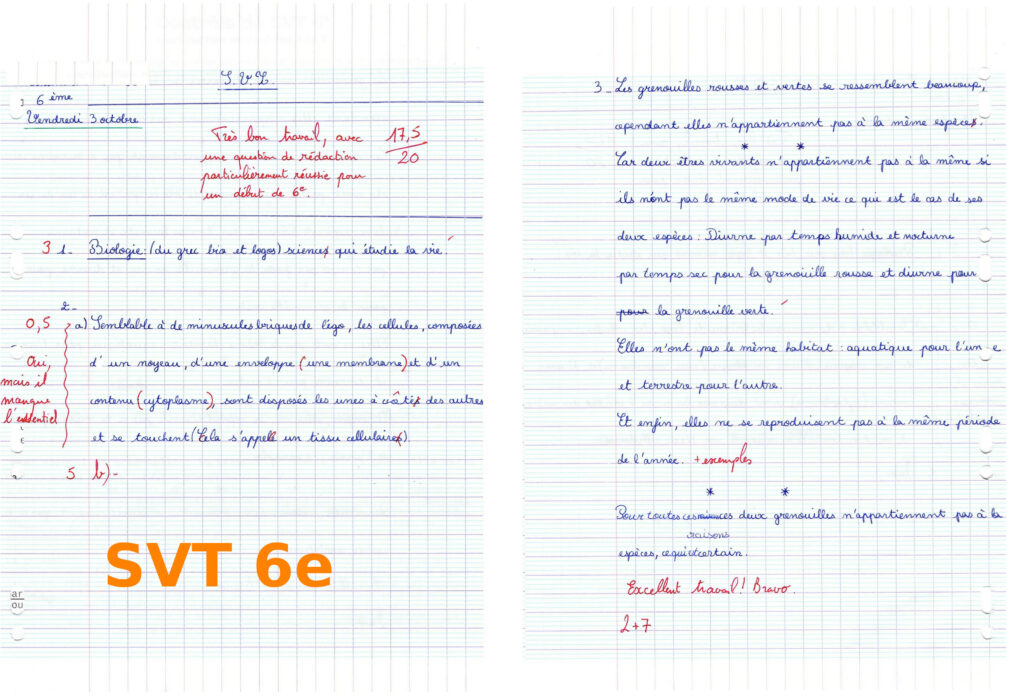 S.V.T.
6ème
Vendredi 3 octobre
Très bon travail, avec
une question de rédaction
particulièrement réussie pour
un début de 6e.
17,5
20
3 1- Biologie: (du grec bio et logos) sciences qui étudie la vie.
2-
0,5 a) Semblable à de minuscules briques de légo, les cellules, composées
Oui,
d'un noyeau, d'une enveloppe (une membrane) et d'un
mais il
manque
contenu (cytoplasme), sont disposés les unes à côtés des autres
l'essentiel
et se touchent (Cela s'appell un tissu cellulaire).
5 b)-
SVT 6e
ar
ou
3- Les grenouilles rousses et vertes se ressemblent beaucoup,
cependant elles n'appartiennent pas à la même espèces.
* *
Car deux êtres vivants n'appartiennent pas à la même si
ils n'ont pas le même mode de vie ce qui est le cas de ses
deux espèces : Diurne par temps humide et nocturne
par temps sec pour la grenouille rousse et diurne pour
pour la grenouille verte.
Elles n'ont pas le même habitat : aquatique pour l'un e
et terrestre pour l'autre.
Et enfin, elles ne se reproduisent pas à la même période
de l'année. + exemples
* *
Pour toutes ces deux grenouilles n'appartiennent pas à la
raisons
espèces, ce qui est certain.
Excellent travail! Bravo.
2+7